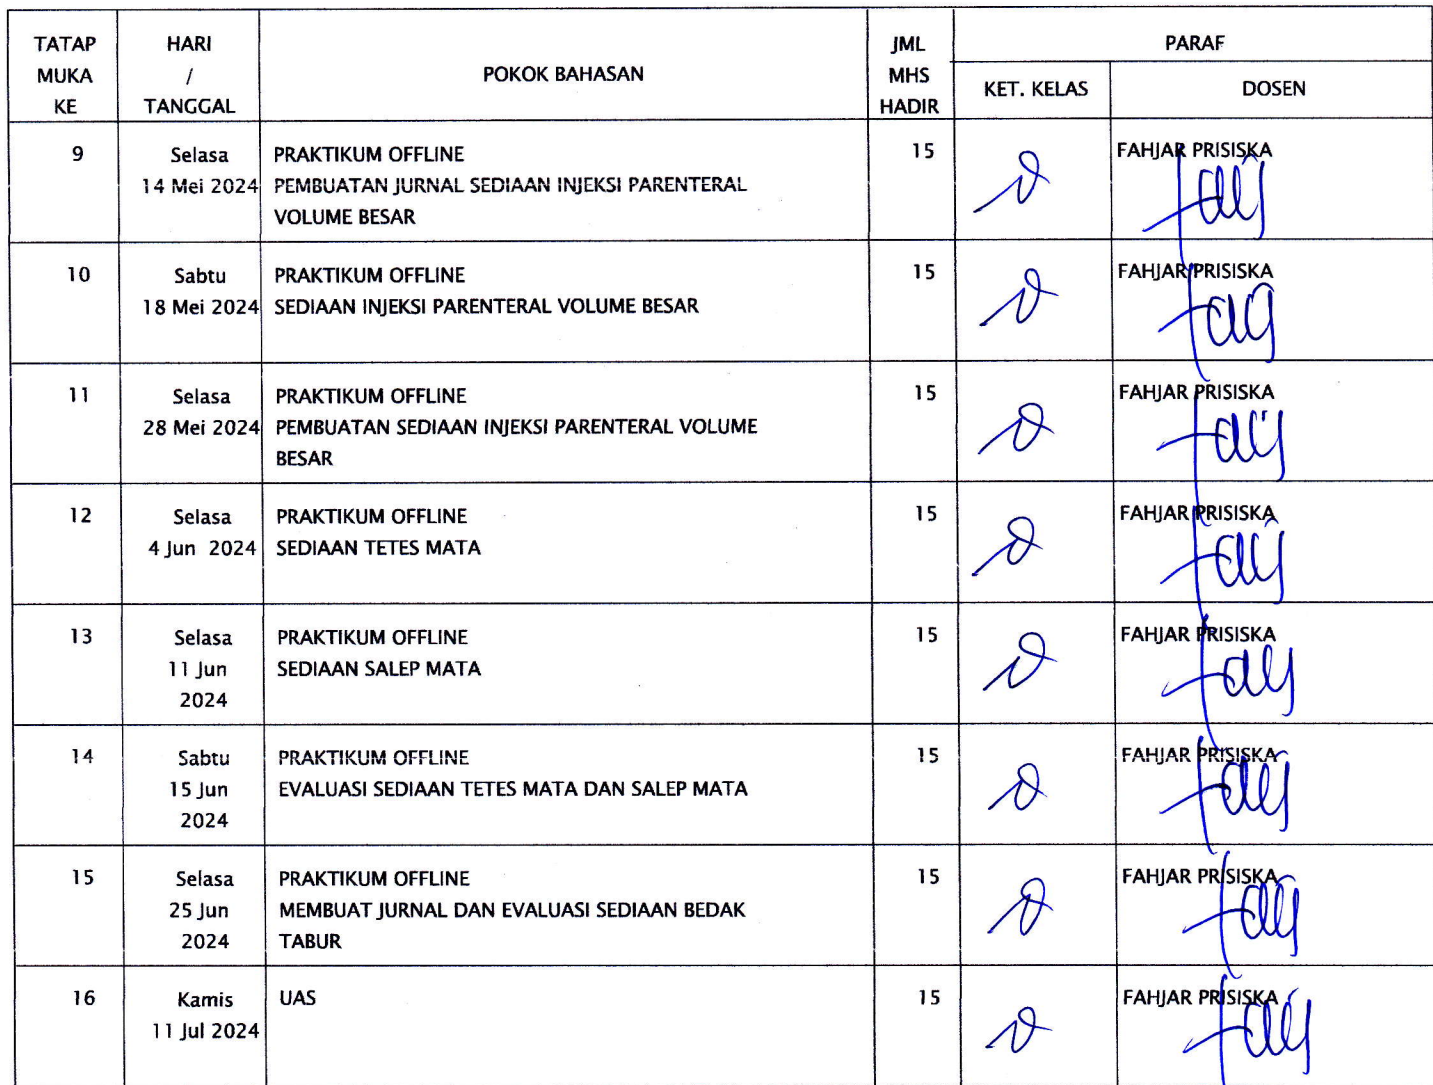 TATAP MUKA KE
HARI / TANGGAL
POKOK BAHASAN
JML MHS HADIR
PARAF
KET. KELAS
DOSEN
9
Selasa
14 Mei 2024
PRAKTIKUM OFFLINE
PEMBUATAN JURNAL SEDIAAN INJEKSI PARENTERAL
VOLUME BESAR
15
FAHJAR PRISISKA
10
Sabtu
18 Mei 2024
PRAKTIKUM OFFLINE
SEDIAAN INJEKSI PARENTERAL VOLUME BESAR
15
FAHJAR PRISISKA
11
Selasa
28 Mei 2024
PRAKTIKUM OFFLINE
PEMBUATAN SEDIAAN INJEKSI PARENTERAL VOLUME
BESAR
15
FAHJAR PRISISKA
12
Selasa
4 Jun 2024
PRAKTIKUM OFFLINE
SEDIAAN TETES MATA
15
FAHJAR PRISISKA
13
Selasa
11 Jun
2024
PRAKTIKUM OFFLINE
SEDIAAN SALEP MATA
15
FAHJAR PRISISKA
14
Sabtu
15 Jun
2024
PRAKTIKUM OFFLINE
EVALUASI SEDIAAN TETES MATA DAN SALEP MATA
15
FAHJAR PRISISKA
15
Selasa
25 Jun
2024
PRAKTIKUM OFFLINE
MEMBUAT JURNAL DAN EVALUASI SEDIAAN BEDAK
TABUR
15
FAHJAR PRISISKA
16
Kamis
11 Jul 2024
UAS
15
FAHJAR PRISISKA